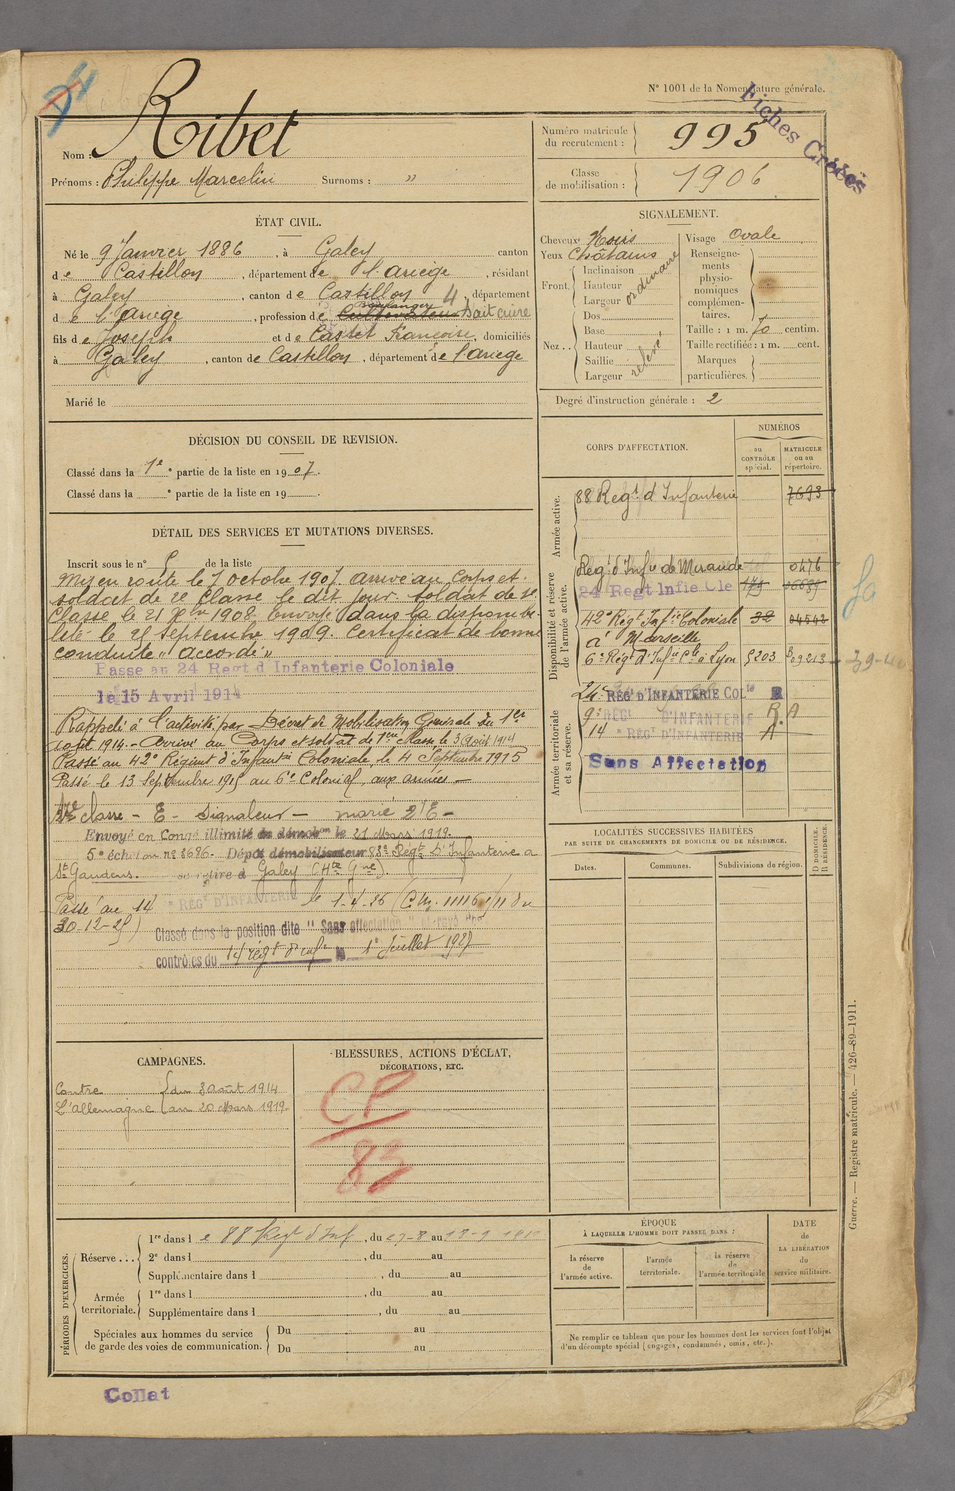 N° 1001 de la Nomenclature générale.
Fiches Créées
Nom : Ribet
Prénoms : Philippe Marcelin Surnoms : "
Numéro matricule du recrutement : 995
Classe de mobilisation : 1906
ÉTAT CIVIL.
Né le 9 Janvier 1886, à Galey canton
de Castillon, département de l'ariège, résidant
à Galey, canton de Castillon, département
d e l'ariège, profession de boulanger 4 sait cuire
fils de Joseph et de Castet Françoise, domiciliés
à Galey, canton de Castillon, département de l'ariège
Marié le
SIGNALEMENT.
Cheveux Noirs Visage Ovale
Yeux Châtains
Renseignements physionomiques complémentaires.
Front. Inclinaison Hauteur Largeur ordinaire
Nez.. Dos Base Hauteur Saillie Largeur relevé
Taille : 1 m. 70 centim.
Taille rectifiée : 1 m. cent.
Marques particulières.
Degré d'instruction générale : 2
DÉCISION DU CONSEIL DE REVISION.
Classé dans la 1e partie de la liste en 1907.
Classé dans la e partie de la liste en 19 .
CORPS D'AFFECTATION.
NUMÉROS
au CONTRÔLE spécial.
MATRICULE ou au répertoire.
Armée active.
88 Regt d'Infanterie 7693
Disponibilité et réserve de l'armée active.
Reg. d'Infie de Mirande 0476
24 Regt Infie Cle
42e Régt Infie Coloniale 32 04542
à Marseille
6e Régt d'Infie Cle à Lyon 5203
Armée territoriale et sa réserve.
24e RÉG D'INFANTERIE COLle
9e RÉGt D'INFANTERIE R.A
14 e RÉGt D'INFANTERIE A
Sans Affectation
DÉTAIL DES SERVICES ET MUTATIONS DIVERSES.
Inscrit sous le n° de la liste
Mis en route le 7 octobre 1907. arrivé au corps et
soldat de 2e classe le dit jour. soldat de 1e
Classe le 21 7bre 1908. Envoyé dans la disponibi-
lité le 25 septembre 1909. Certificat de bonne
conduite "accordé"
Passe au 24 Regt d Infanterie Coloniale
le 15 Avril 1914
Rappelé à l'activité par Décret de Mobilisation Générale du 1er
août 1914. - Arrivé au Corps et soldat de 1ere Classe le 3 Août 1914
Passé au 42e Régiment d'Infantie Coloniale le 4 Septembre 1915
Passé le 13 Septembre 1915 au 6e Colonial, aux armées -
classe - E - Signaleur - marié 2 E -
Envoyé en Congé illimité de démobon le 21 Mars 1919.
5e échelon no 8696. Dépôt démobilisateur 88e Regt D'Infanterie à
St Gaudens. se retire à Galey (Hte Gne).
Passé au 14 e RÉGt D'INFANTERIE le 1-4-26
30-12-25)
Classé dans la position dite " Sans affectation " et rayé des
contrôles du 14 régt d'infie le 1er Juillet 1927
LOCALITÉS SUCCESSIVES HABITÉES
PAR SUITE DE CHANGEMENTS DE DOMICILE OU DE RÉSIDENCE.
Dates. Communes. Subdivisions de région.
D. DOMICILE. R. RÉSIDENCE.
CAMPAGNES.
Contre du 3 août 1914
L'allemagne au 20 Mars 1919.
BLESSURES, ACTIONS D'ÉCLAT,
DÉCORATIONS, ETC.
CP
83
PÉRIODES D'EXERCICES.
Réserve ... 1re dans l e 88 Regt d'Inf, du 27-8 au
2e dans l , du au
Supplémentaire dans l , du au
Armée territoriale. 1re dans l , du au
Supplémentaire dans l , du au
Spéciales aux hommes du service de garde des voies de communication. Du au
Du au
ÉPOQUE
À LAQUELLE L'HOMME DOIT PASSER DANS :
la réserve de l'armée active.
l'armée territoriale.
la réserve de l'armée territoriale
DATE de LA LIBÉRATION du service militaire.
Ne remplir ce tableau que pour les hommes dont les services font l'objet
d'un décompte spécial (engagés, condamnés, omis, etc.).
Guerre. — Registre matricule. — 426-89-1911.
Collat